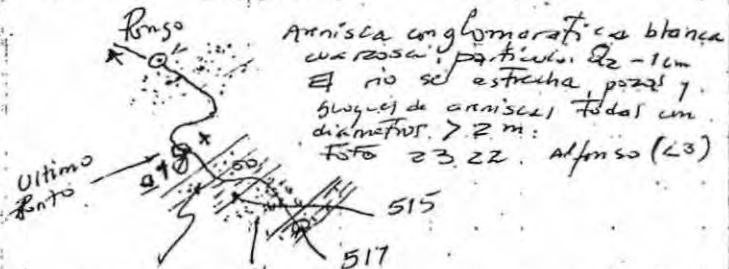 Pongo
Arenisca conglomeratica blanca
cuarzosa: particulas Qz - 1cm
El rio se estrecha, pozas y
bloques de areniscas todas con
diametros > 2 m:
Foto 23.22. Alfonso (<3)
Ultimo
Punto
515
517